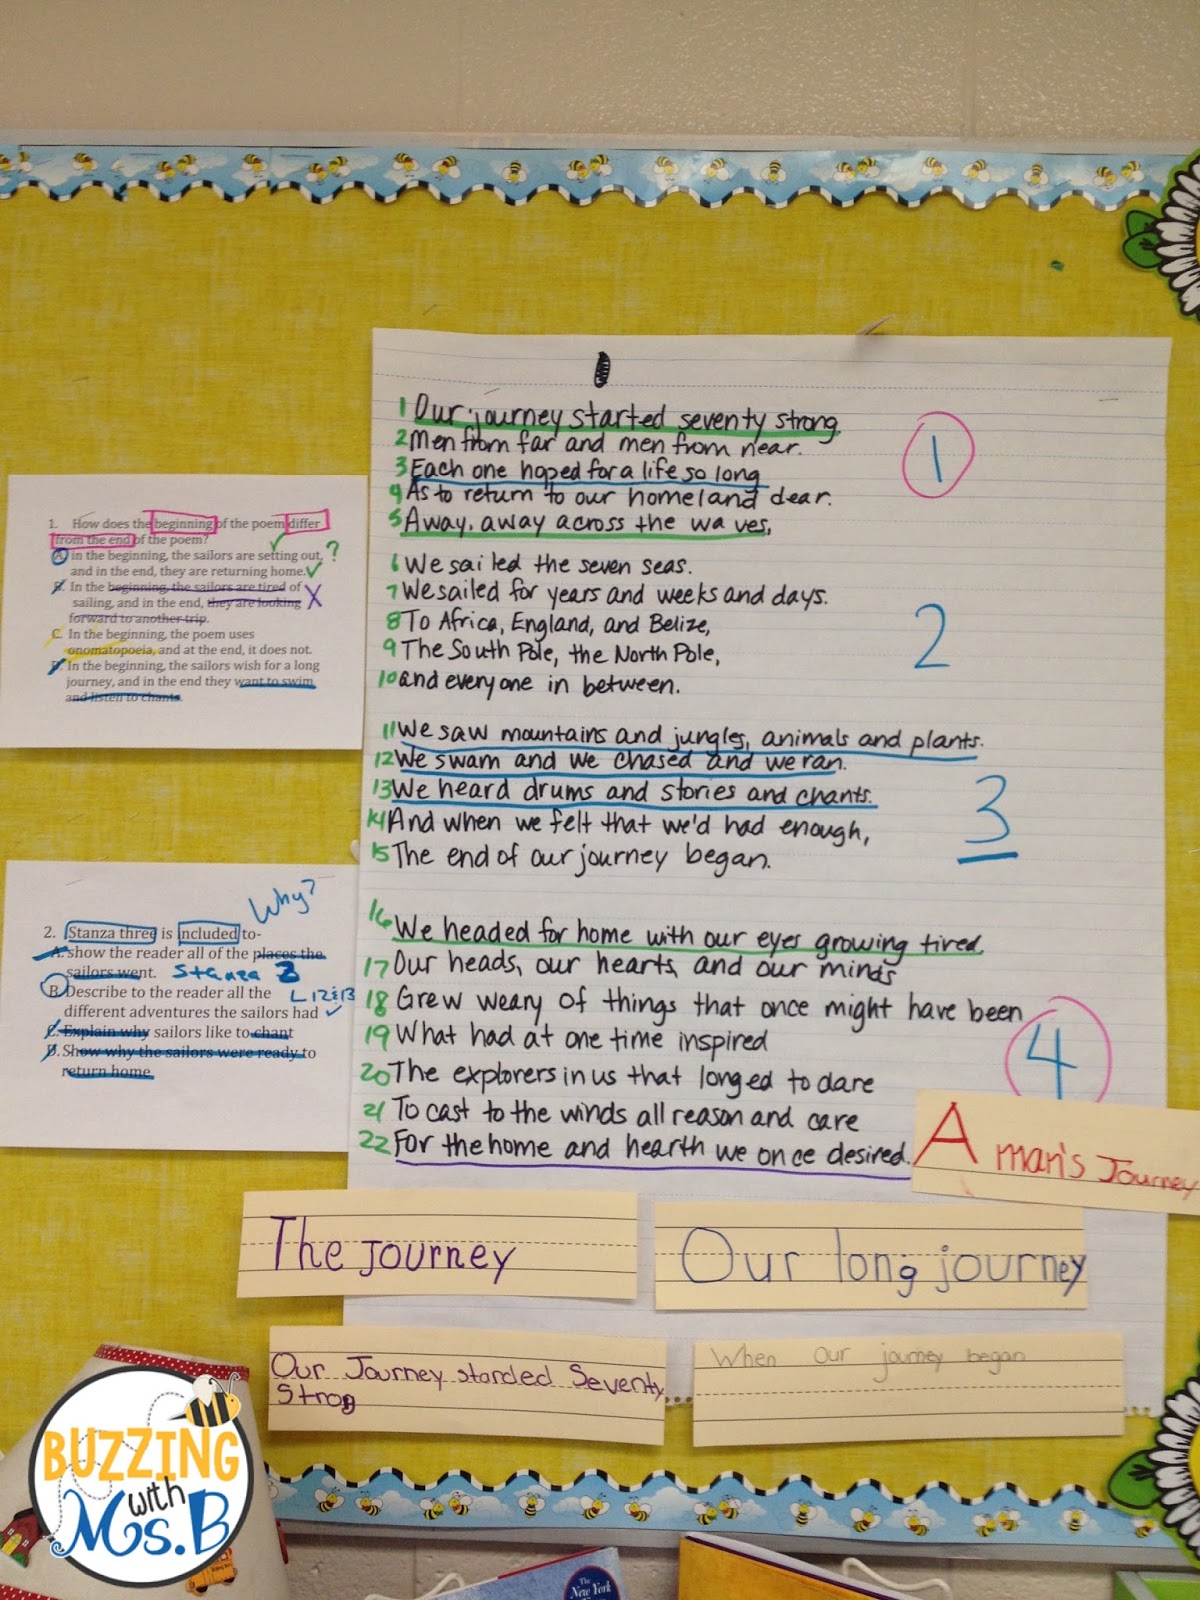 1. How does the beginning of the poem differ
from the end of the poem?
A. in the beginning, the sailors are setting out, ?
and in the end, they are returning home.
B. In the beginning, the sailors are tired of
sailing, and in the end, they are looking X
forward to another trip.
C. In the beginning, the poem uses
onomatopoeia, and at the end, it does not.
D. In the beginning, the sailors wish for a long
journey, and in the end they want to swim
and listen to chants.
Why?
2. Stanza three is included to-
A. show the reader all of the places the
sailors went. Stanza 2
B. Describe to the reader all the L 12 & 13
different adventures the sailors had
C. Explain why sailors like to chant
D. Show why the sailors were ready to
return home.
1 Our journey started seventy strong
2 Men from far and men from near.
3 Each one hoped for a life so long
4 As to return to our homeland dear.
5 Away, away across the waves,
1
6 We sailed the seven seas.
7 We sailed for years and weeks and days.
8 To Africa, England, and Belize,
9 The South Pole, the North Pole,
10 and everyone in between.
2
11 We saw mountains and jungles, animals and plants.
12 We swam and we chased and we ran.
13 We heard drums and stories and chants.
14 And when we felt that we'd had enough,
15 The end of our journey began.
3
16 We headed for home with our eyes growing tired
17 Our heads, our hearts, and our minds
18 Grew weary of things that once might have been
19 What had at one time inspired
20 The explorers in us that longed to dare
21 To cast to the winds all reason and care
22 For the home and hearth we once desired.
4
A man's Journey
The journey
Our long journey
Our Journey starded Seventy
Strong
When our journey began
BUZZING
with
Ms. B
The
New York